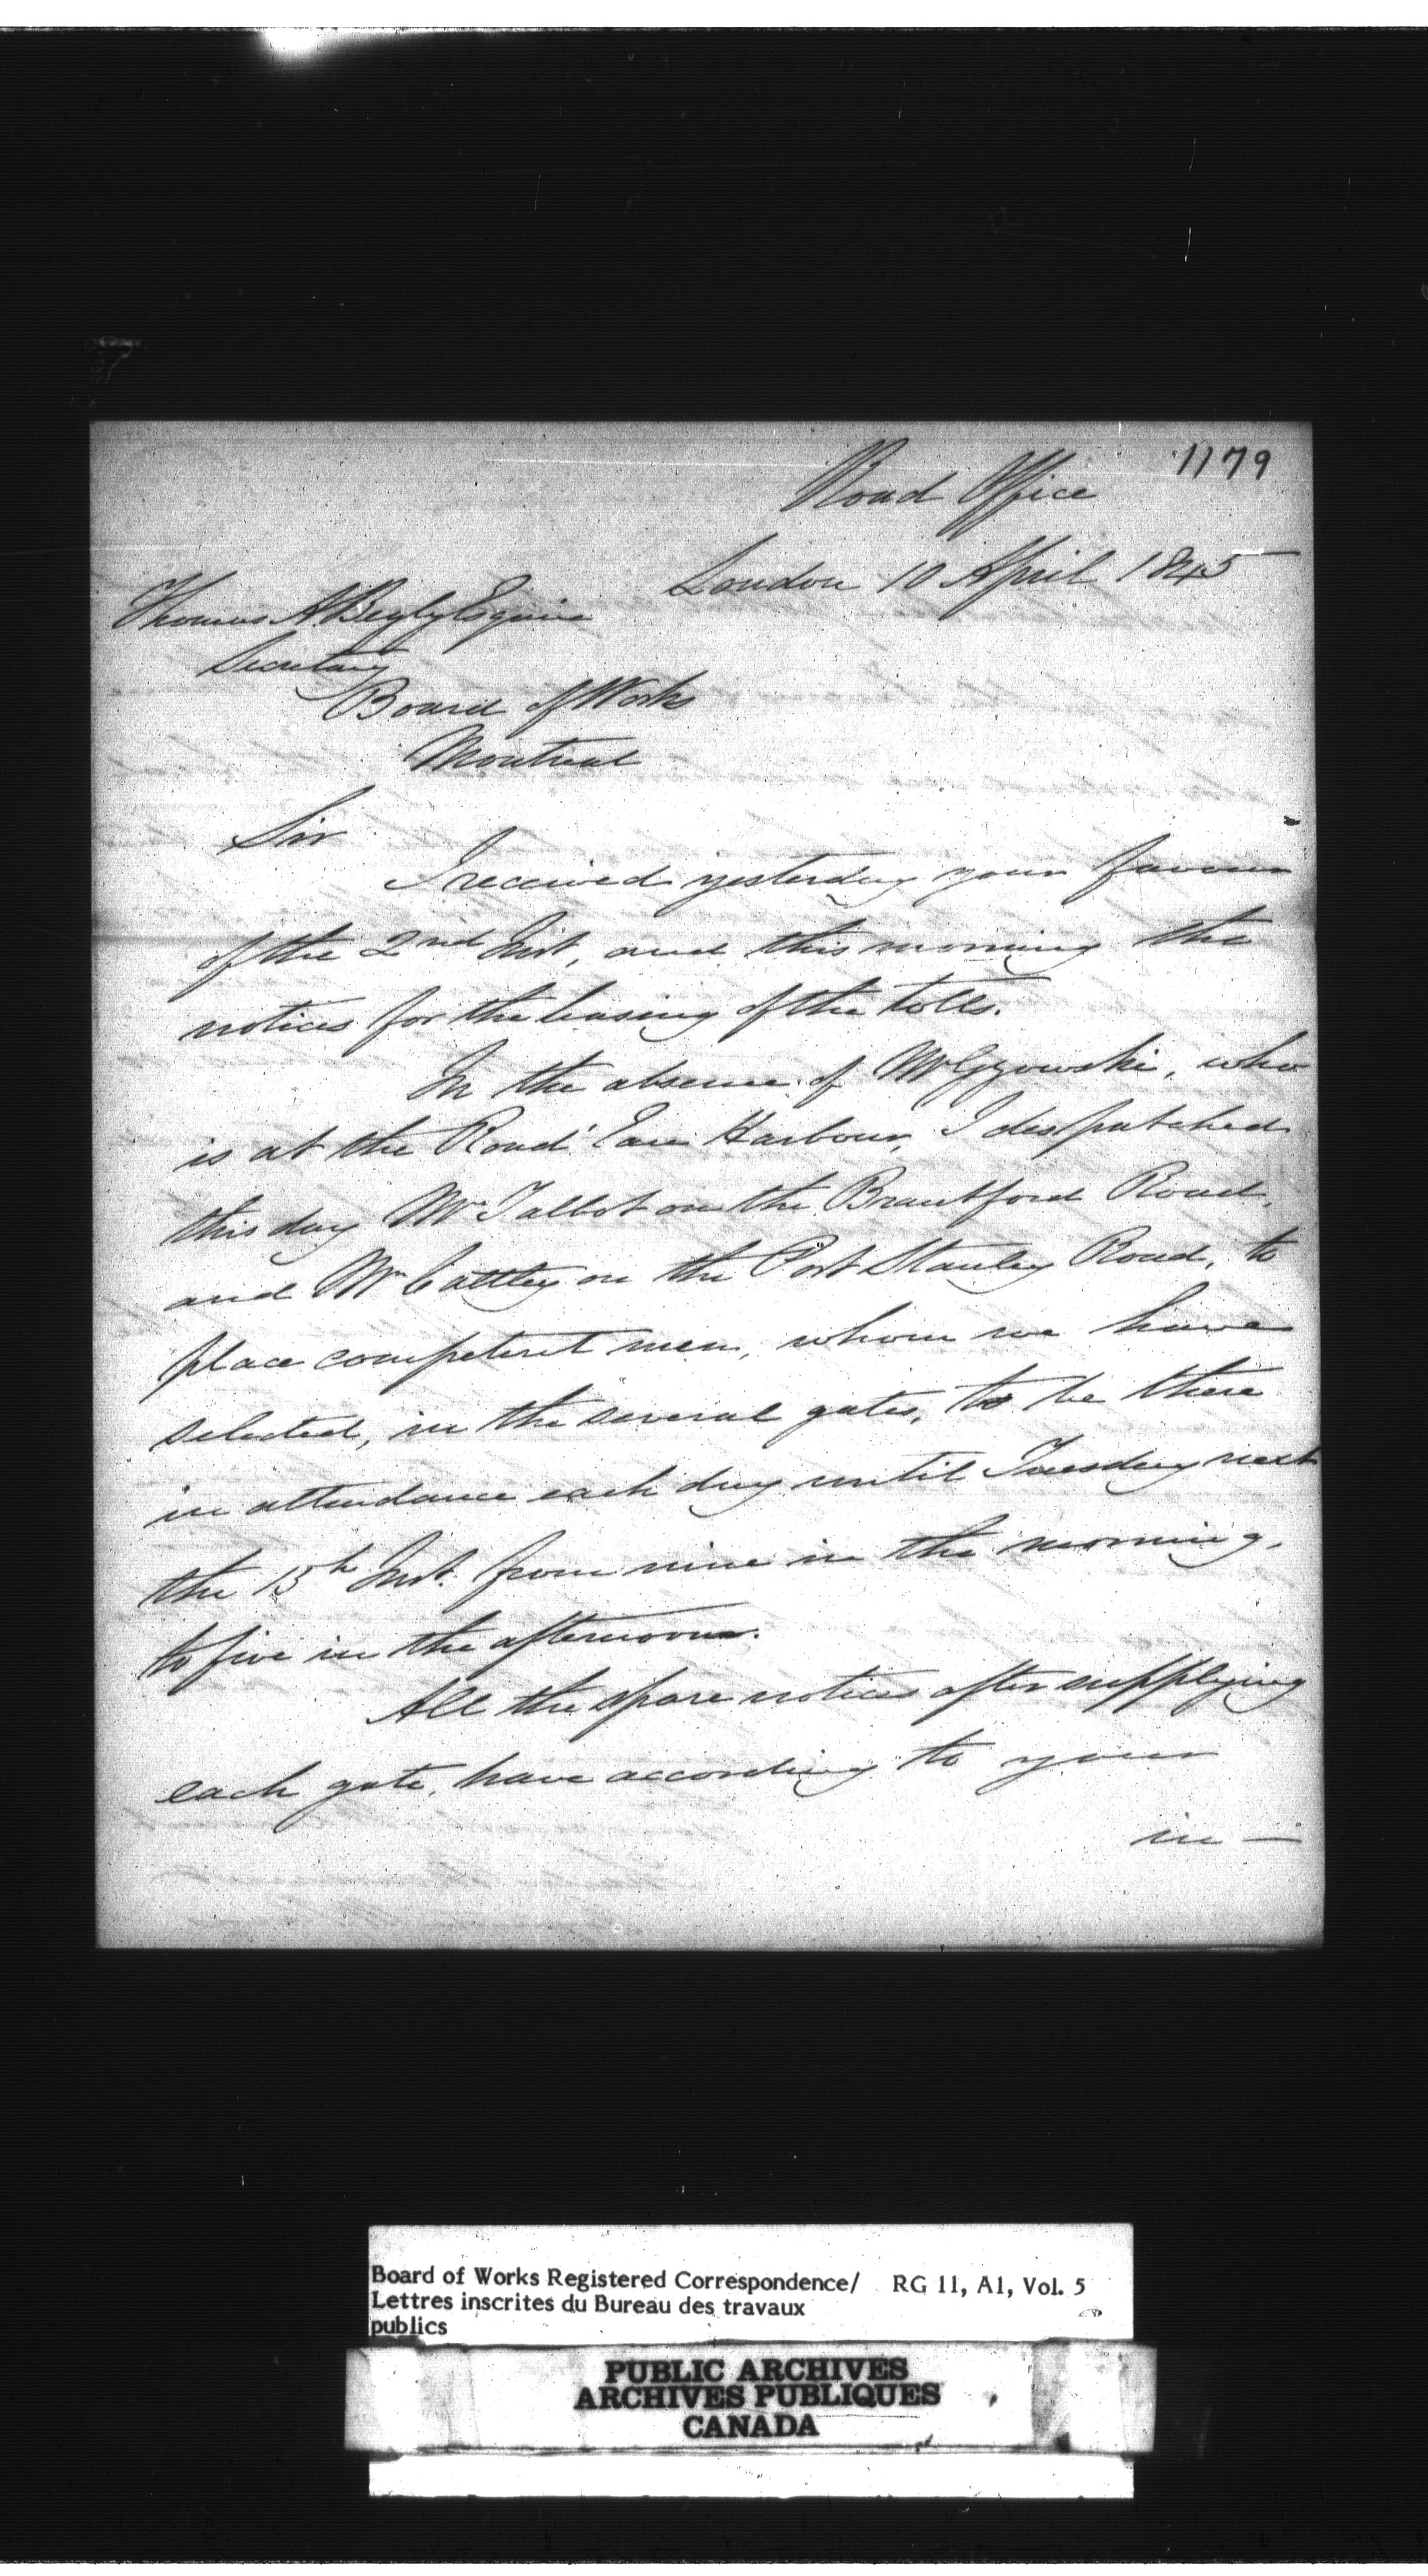 1179
Road Office
London 10 April 1845
Thomas A. Begly Esquire
Secretary
Board of Works
Montreal
Sir
I received yesterday your favour
of the 2nd Inst, and this morning the
notices for the leasing of the tolls.
In the absence of Mr Gzowski, who
is at the Rond' Eau Harbour, I despatched
this day Mr Talbot on the Brantford Road,
and Mr Cattley on the Port Stanley Road, to
place competent men, whom we have
selected, in the several gates, to be there
in attendance each day until Tuesday next
the 15th Inst. from nine in the morning,
to five in the afternoon.
All the spare notices after supplying
each gate, have according to your
in —
Board of Works Registered Correspondence/ RG 11, A1, Vol. 5
Lettres inscrites du Bureau des travaux
publics
PUBLIC ARCHIVES
ARCHIVES PUBLIQUES
CANADA